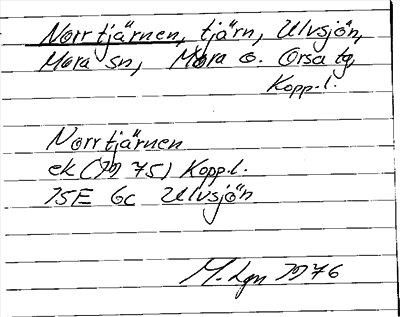 Norrtjärnen, tjärn, Ulvsjön,
Mora sn, Mora o. Orsa tg,
Kopp.l.
Norrtjärnen
ek (1975) Kopp.l.
15E 6c Ulvsjön
M. Lgn 1976